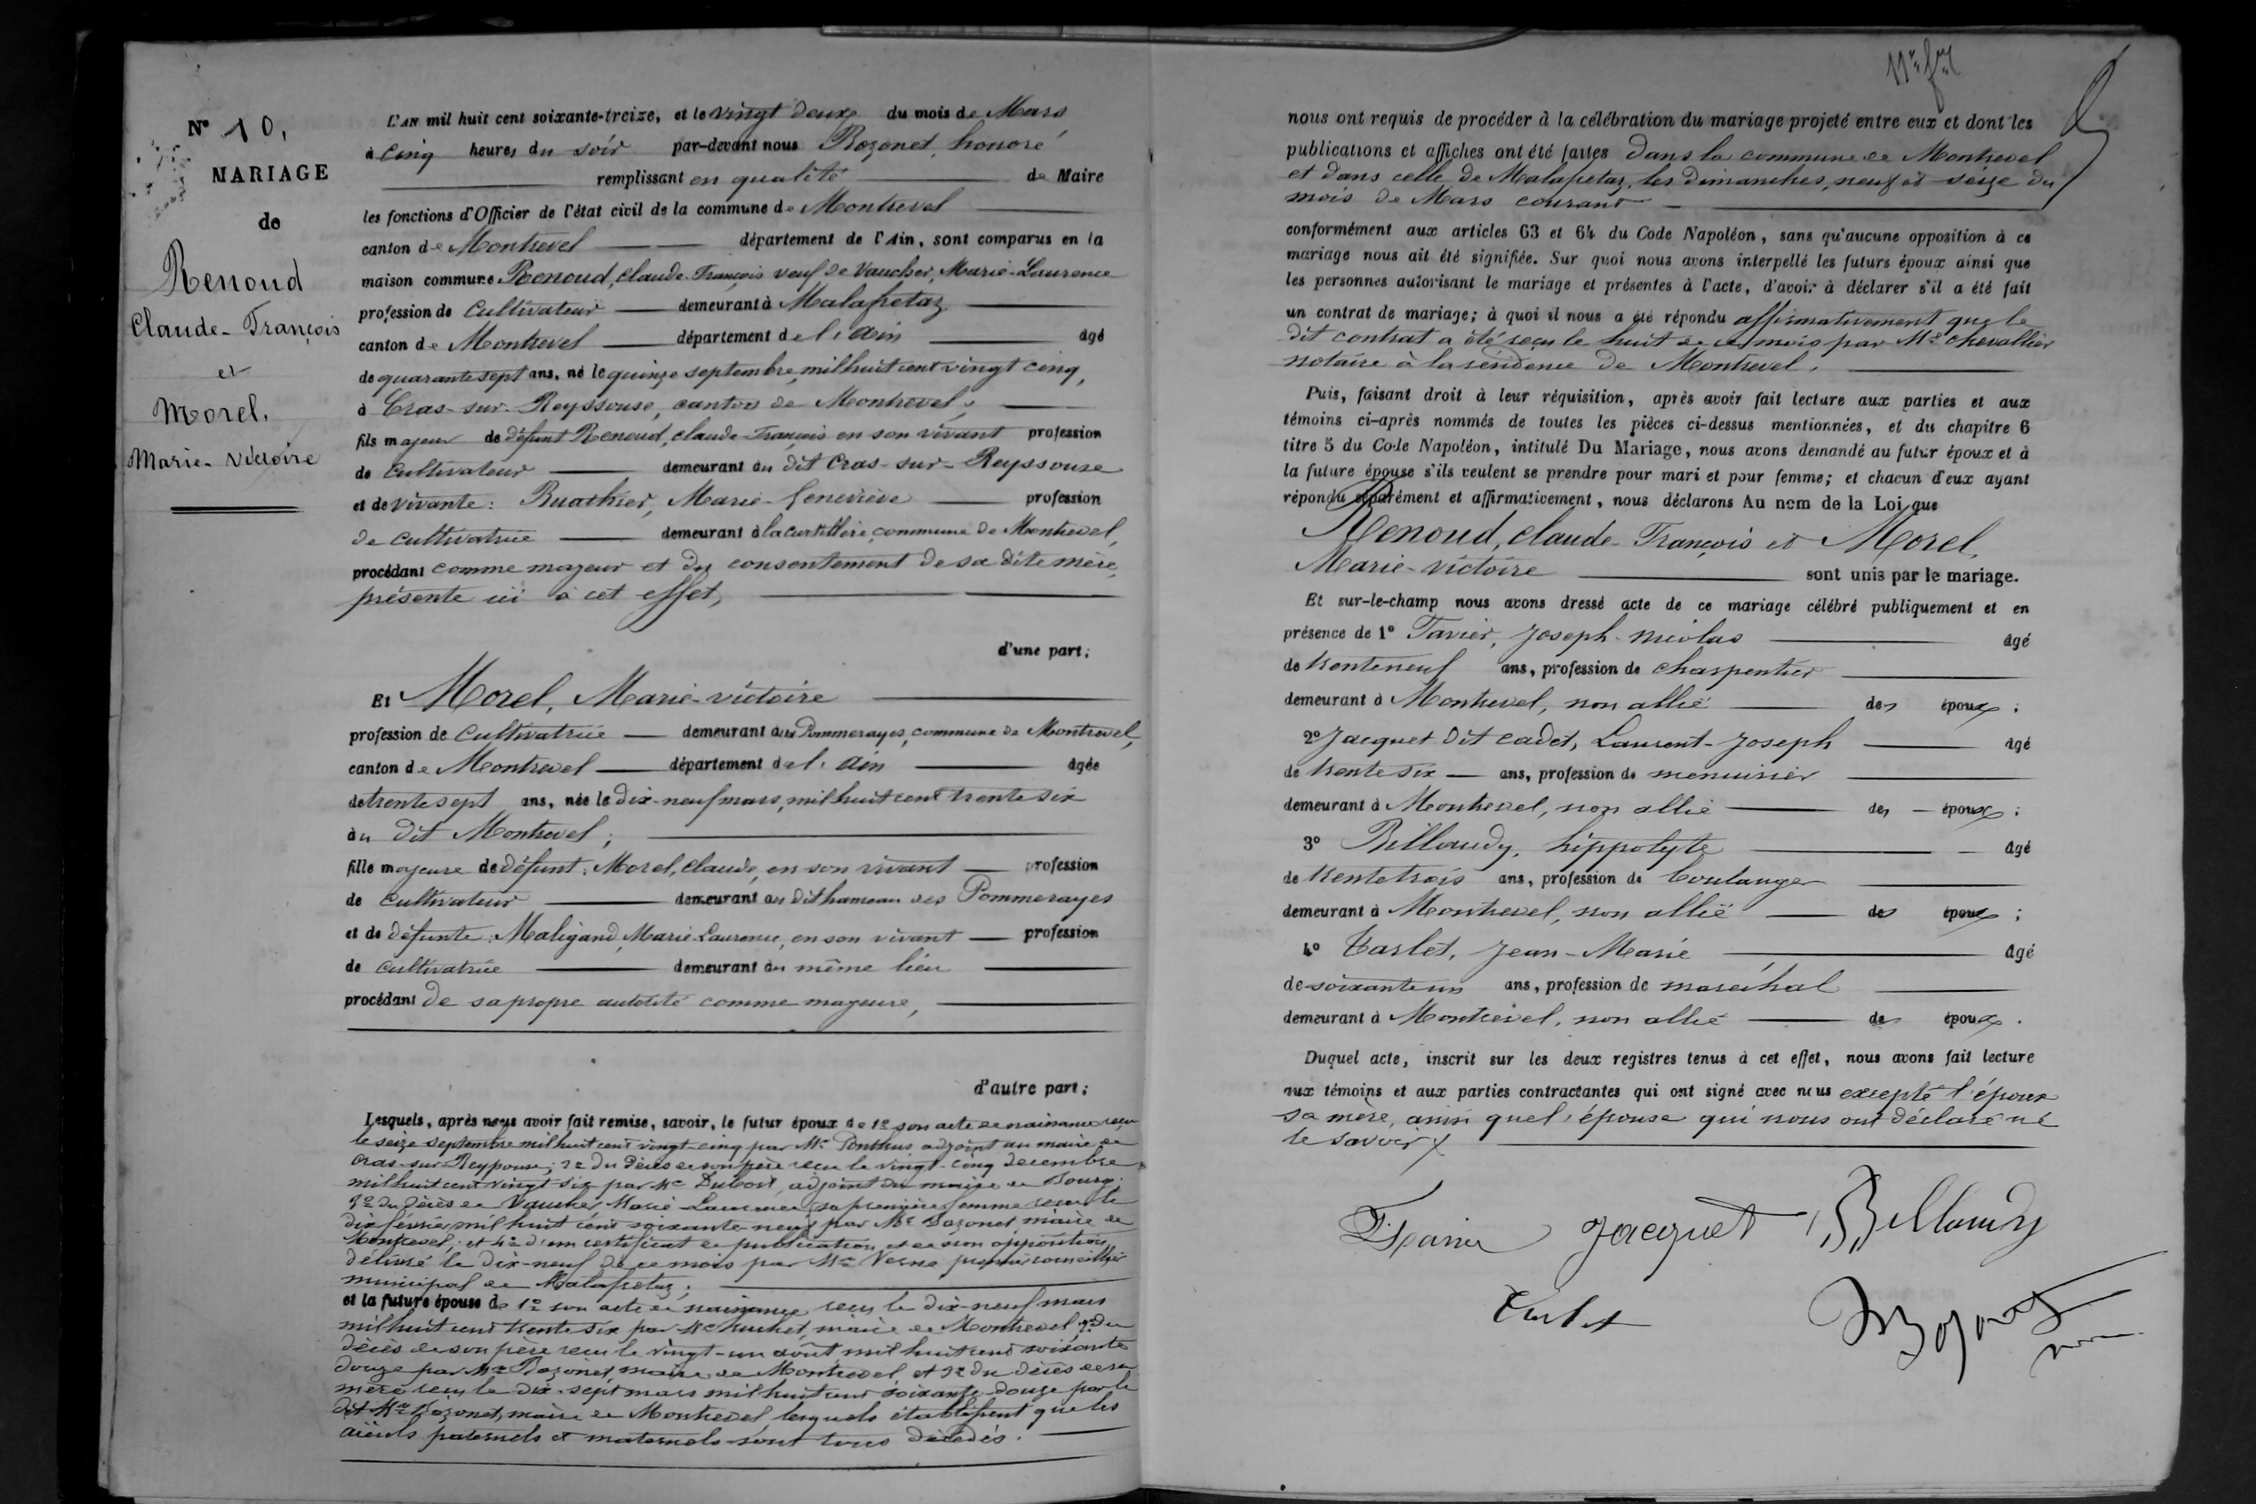 N° 10,
MARIAGE
de
Renoud
Claude-François
et
Morel.
Marie-Victoire
L'AN mil huit cent soixante-treize, et le vingt deux du mois de Mars
à cinq heures du soir par-devant nous Bozonet, honoré
remplissant en qualité de Maire
les fonctions d'Officier de l'état civil de la commune de Montrevel
canton de Montrevel département de l'Ain, sont comparus en la
maison commune Renoud, claude-François veuf de Vaucher, Marie-Laurence
profession de cultivateur demeurant à Malafretaz
canton de Montrevel département de l'Ain âgé
de quarante sept ans, né le quinze septembre, mil huit cent vingt cinq,
à Cras-sur-Reyssouse, canton de Montrevel;
fils majeur de défunt Renoud, claude-François en son vivant profession
de cultivateur demeurant au dit Cras-sur-Reyssouse
et de vivante: Buathier, Marie-Geneviève profession
de cultivatrice demeurant à la curtillère, commune de Montrevel,
procédant comme majeur et du consentement de sa dite mère,
présente ici à cet effet,
d'une part;
Et Morel, Marie-victoire
profession de cultivatrice demeurant aux Pommerayes, commune de Montrevel,
canton de Montrevel département de l'Ain âgée
de trente sept ans, née le dix-neuf mars, mil huit cent trente six
au dit Montrevel;
fille majeure de défunt: Morel, claude, en son vivant profession
de cultivateur demeurant au dit hameau des Pommerayes
et de défunte: Maligand, Marie-Laurence, en son vivant profession
de cultivatrice demeurant au même lieu
procédant de sa propre autorité comme majeure,
d'autre part;
Lesquels, après nous avoir fait remise, savoir, le futur époux de 1° son acte de naissance reçu
le seize septembre mil huit cent vingt-cinq par Mr Ponthus adjoint au maire de
Cras-sur-Reyssouse; 2° du décès de son père reçu le vingt-cinq décembre
mil huit cent vingt six par Mr Dubost, adjoint du maire de Bourg;
3° du décès de Vaucher Marie-Laurence sa première femme reçu le
dix février mil huit cent soixante-neuf par Mr Bozonet maire de
Montrevel; et 4° d'un certificat de publication et de non opposition
délivré le dix-neuf de ce mois par Mr Verne premier conseiller
municipal de Malafretaz;
et la future épouse de 1° son acte de naissance reçu le dix-neuf mars
mil huit cent trente six par Mr huchet, maire de Montrevel, 2° du
décès de son père reçu le vingt-un août mil huit cent soixante
douze par Mr Bozonet, maire de Montrevel, et 3° du décès de sa
mère reçu le dix-sept mars mil huit cent soixante-douze par le
dit Mr Bozonet, maire de Montrevel, lesquels établissent que les
aïeuls paternels et maternels sont tous décédés.
nous ont requis de procéder à la célébration du mariage projeté entre eux et dont les
publications et affiches ont été faites dans la commune de Montrevel
et dans celle de Malafretaz, les dimanches, neuf et seize du
mois de Mars courant
conformément aux articles 63 et 64 du Code Napoléon, sans qu'aucune opposition à ce
mariage nous ait été signifiée. Sur quoi nous avons interpellé les futurs époux ainsi que
les personnes autorisant le mariage et présentes à l'acte, d'avoir à déclarer s'il a été fait
un contrat de mariage; à quoi il nous a été répondu affirmativement que le
dit contrat a été reçu le huit de ce mois par Me chevallier
notaire à la résidence de Montrevel.
Puis, faisant droit à leur réquisition, après avoir fait lecture aux parties et aux
témoins ci-après nommés de toutes les pièces ci-dessus mentionnées, et du chapitre 6
titre 5 du Code Napoléon, intitulé Du Mariage, nous avons demandé au futur époux et à
la future épouse s'ils veulent se prendre pour mari et pour femme; et chacun d'eux ayant
répondu séparément et affirmativement, nous déclarons Au nom de la Loi que
Renoud, claude-François et Morel,
Marie-victoire sont unis par le mariage.
Et sur-le-champ nous avons dressé acte de ce mariage célébré publiquement et en
présence de 1° Favier, Joseph-nicolas âgé
de trente neuf ans, profession de charpentier
demeurant à Montrevel, non allié des époux;
2° Jacquet dit cadet, Laurent-Joseph âgé
de trente six ans, profession de menuisier
demeurant à Montrevel, non allié des époux;
3° Billoudy, hippolyte âgé
de trente trois ans, profession de boulanger
demeurant à Montrevel, non allié des époux;
4° Tarlet, Jean-Marie âgé
de soixante un ans, profession de maréchal
demeurant à Montrevel, non allié des époux.
Duquel acte, inscrit sur les deux registres tenus à cet effet, nous avons fait lecture
aux témoins et aux parties contractantes qui ont signé avec nous excepté l'époux
sa mère, ainsi que l'épouse qui nous ont déclaré ne
le savoir
Favier Jacquet Billoudy
Tarlet Bozonet